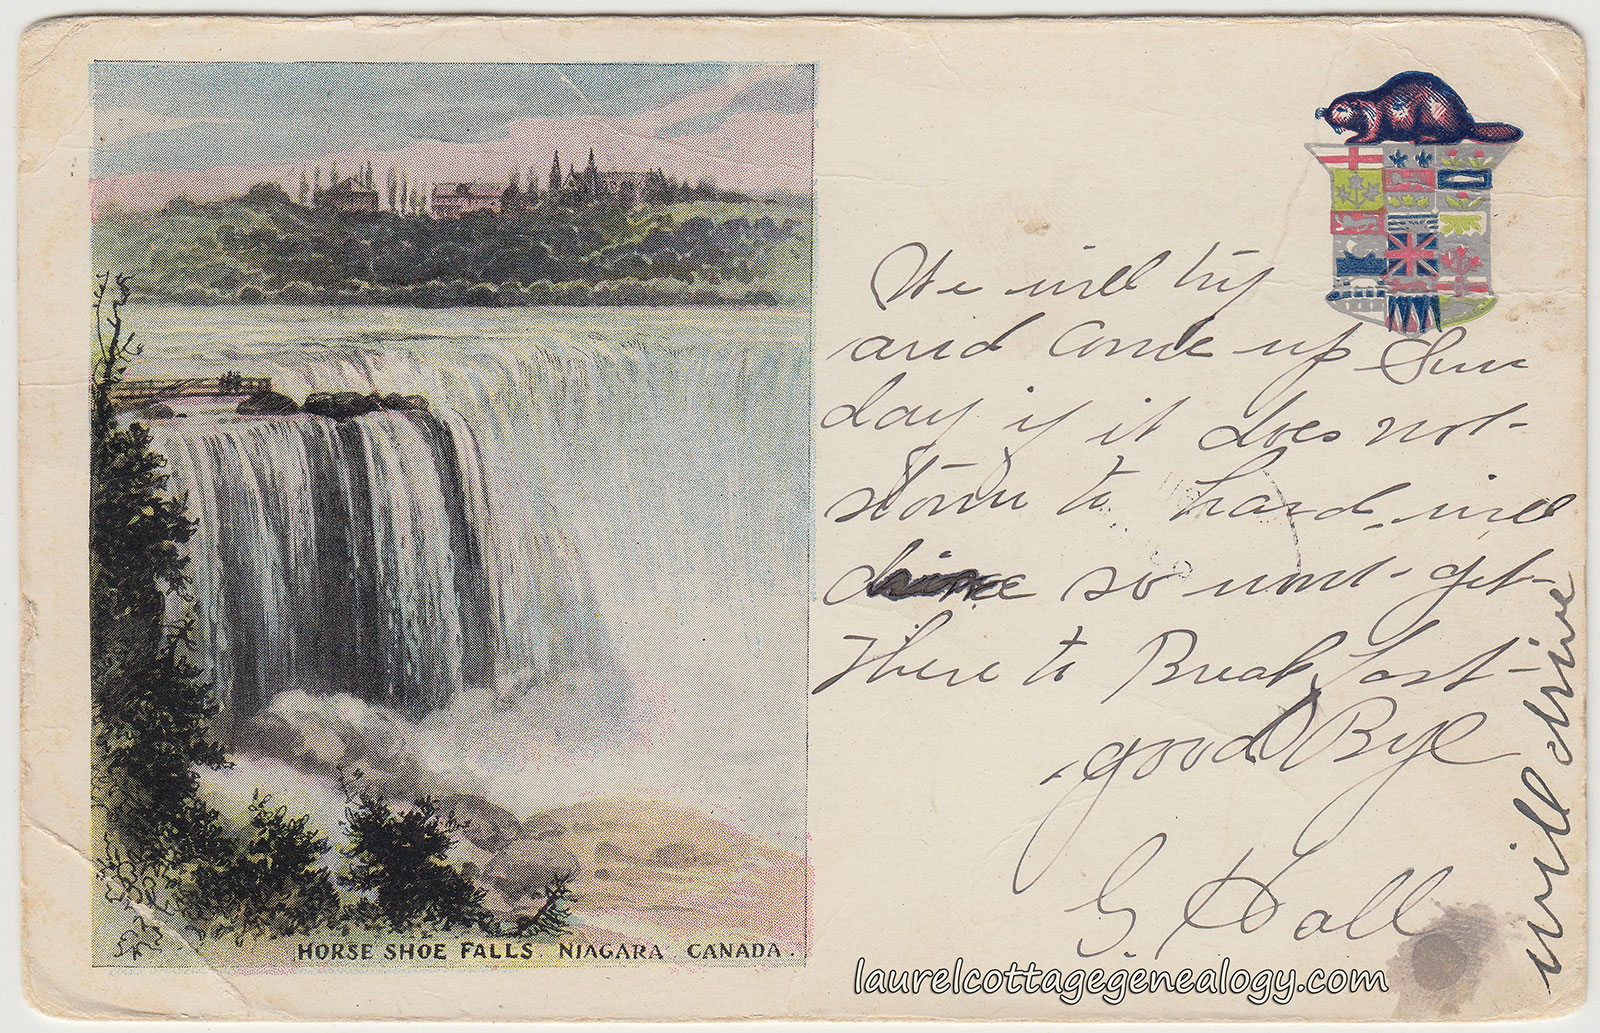 We will try
and Come up Sun
day if it does not-
storm to hard will
drive so wont- get-
there to Break fast-
good Bye
G. Hall
will drive
HORSE SHOE FALLS. NIAGARA. CANADA.
laurelcottagegenealogy.com